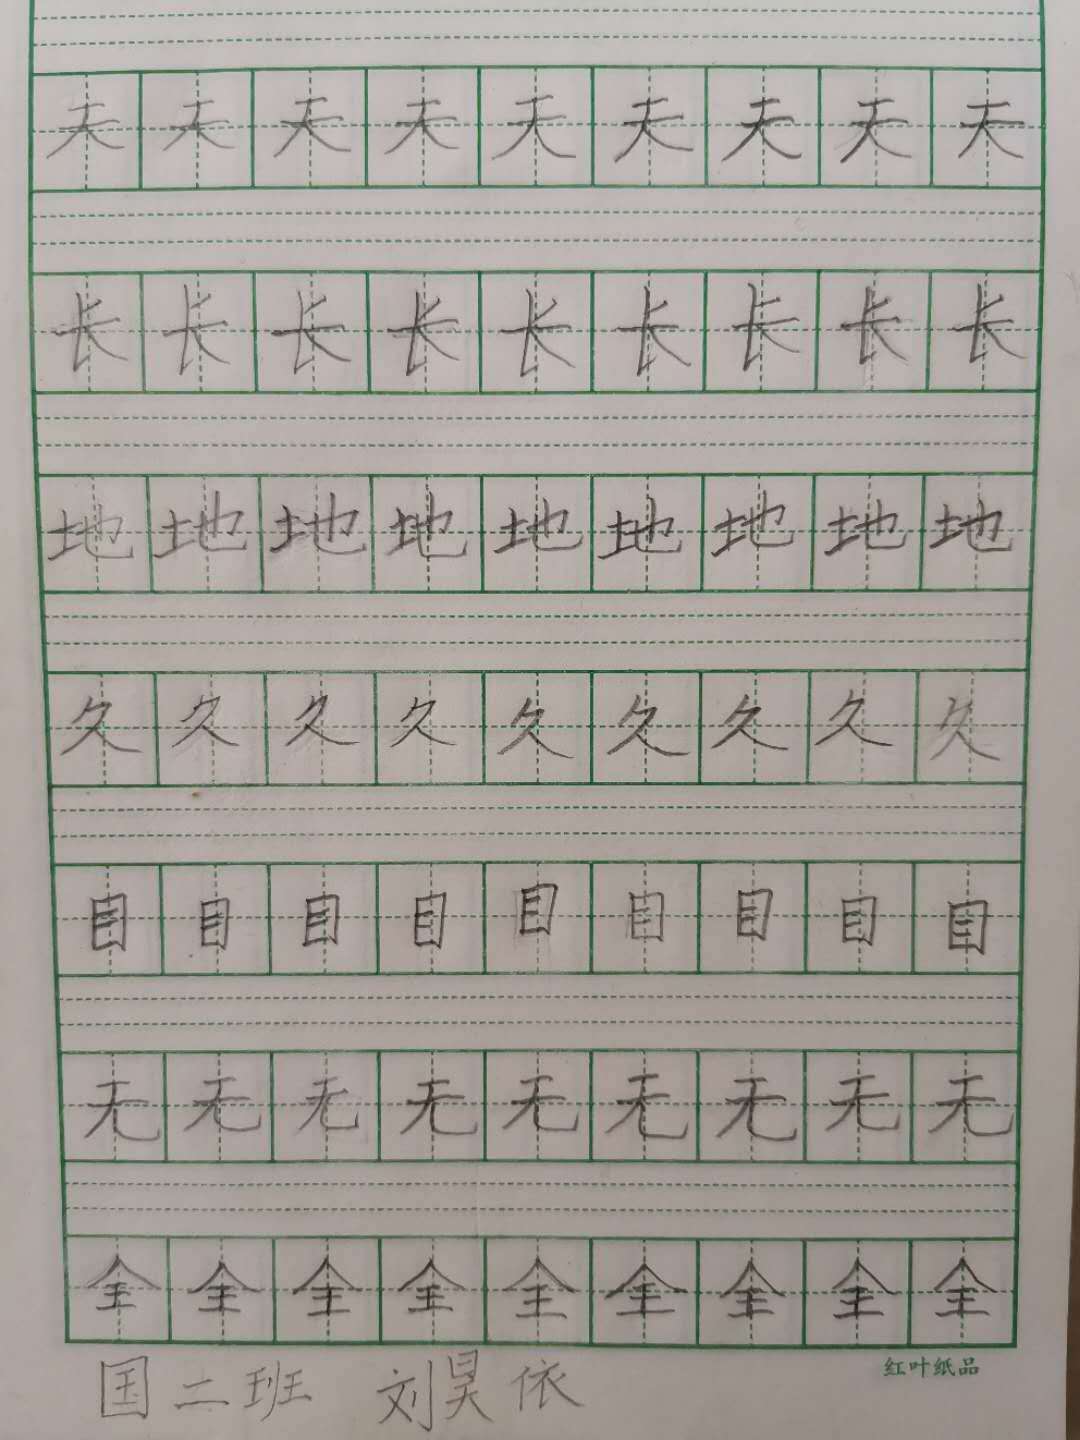 天天天天天天天天天
长长长长长长长长长
地地地地地地地地地
久久久久久久久久久
目目目目目目目目目
无无无无无无无无无
全全全全全全全全全
红叶纸品
国二班 刘昊依